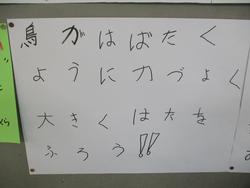 鳥がはばたく
ように力づよく
大きくはたを
ふろう!!